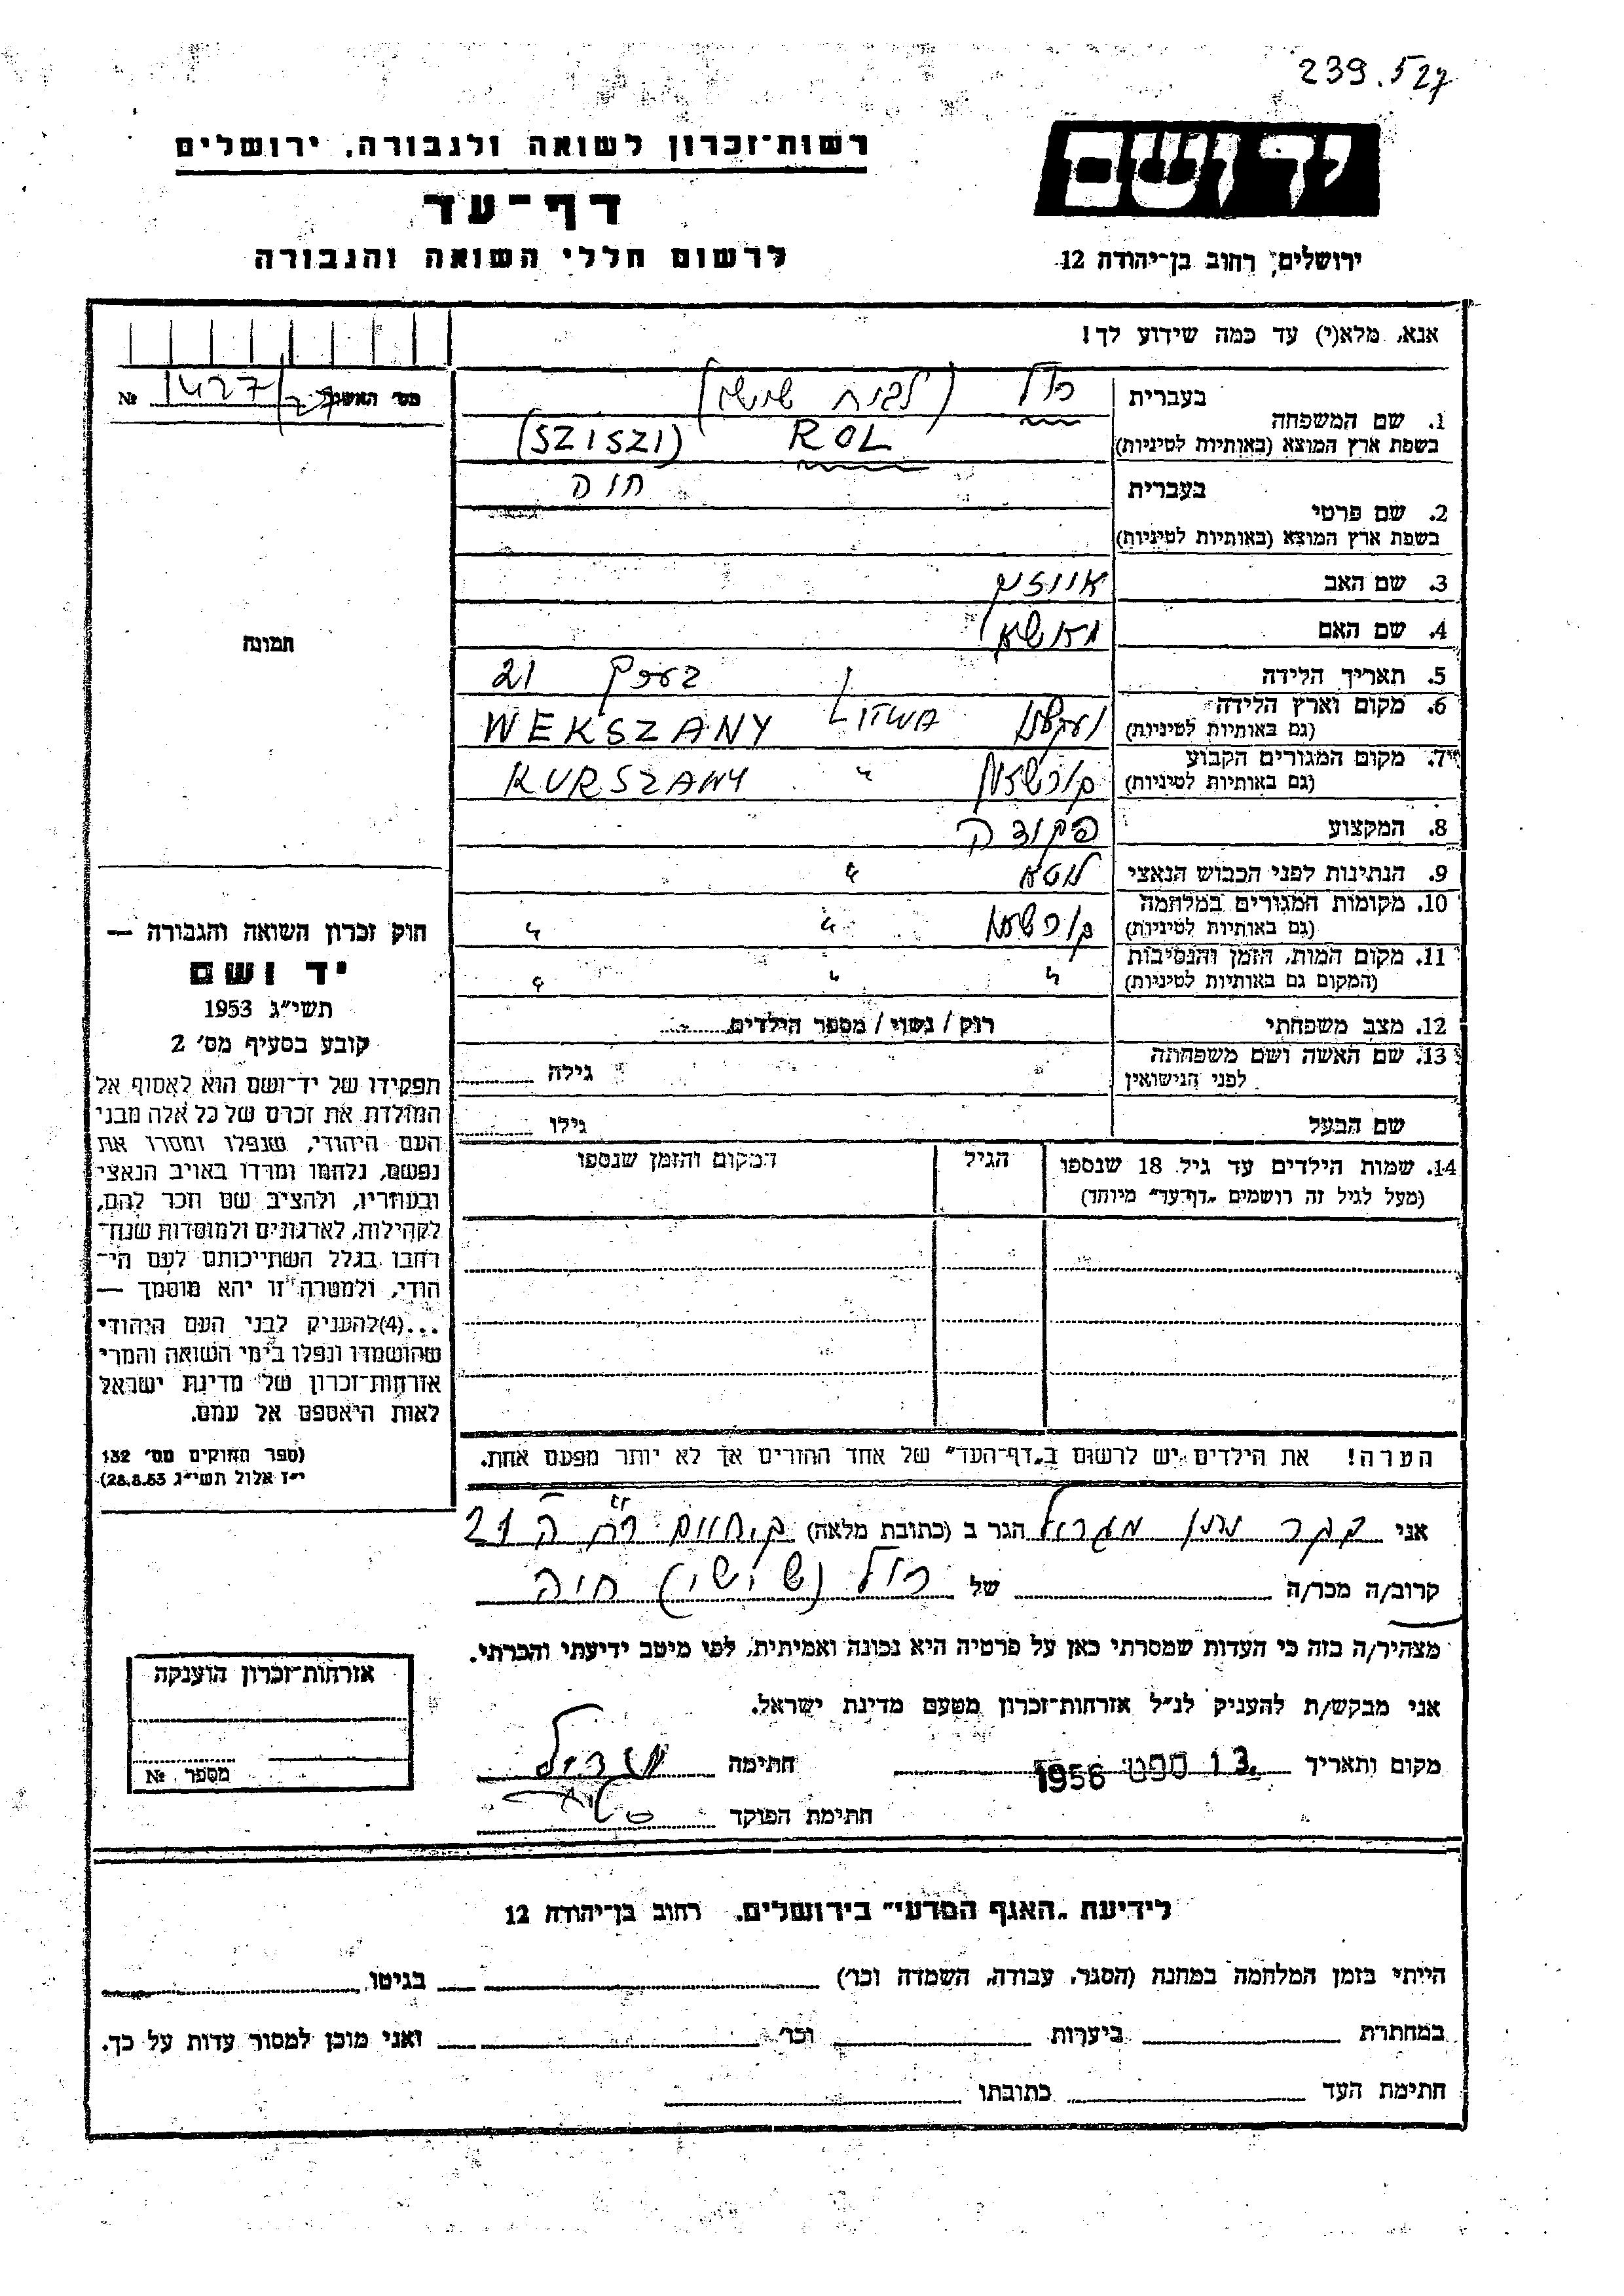 239.527
רשות־זכרון לשואה ולגבורה, ירושלים
דף־עד
לרשום חללי השואה והגבורה
יד ושם
ירושלים, רחוב בן־יהודה 12
אנא, מלא(י) עד כמה שידוע לך!
מס׳ האשה № 1427/27
1. שם המשפחה
בעברית רול (לבית שישי)
בשפת ארץ המוצא (באותיות לטיניות) ROL (SZISZI)
2. שם פרטי
בעברית חוה
בשפת ארץ המוצא (באותיות לטיניות)
3. שם האב
4. שם האם
5. תאריך הלידה 21
6. מקום וארץ הלידה (גם באותיות לטיניות) LITWA WEKSZANY
7. מקום המגורים הקבוע (גם באותיות לטיניות) קורשאן " KURSZANY
8. המקצוע פקידה
9. הנתינות לפני הכבוש הנאצי ליטא "
10. מקומות המגורים במלחמה (גם באותיות לטיניות) קורשאן " "
11. מקום המות, הזמן והנסיבות (המקום גם באותיות לטיניות) " " "
12. מצב משפחתי רוק / נשוי / מספר הילדים
13. שם האשה ושם משפחתה לפני הנישואין גילה
שם הבעל גילו
14. שמות הילדים עד גיל 18 שנספו (מעל לגיל זה רושמים „דף־עד” מיוחד) הגיל המקום והזמן שנספו
תמונה
חוק זכרון השואה והגבורה —
יד ושם
תשי״ג 1953
קובע בסעיף מס׳ 2
תפקידו של יד־ושם הוא לאסוף אל
המולדת את זכרם של כל אלה מבני
העם היהודי, שנפלו ומסרו את
נפשם, נלחמו ומרדו באויב הנאצי
ובעוזריו, ולהציב שם וזכר להם,
לקהילות, לארגונים ולמוסדות שנח־
רבו בגלל השתייכותם לעם הי־
הודי, ולמטרה זו יהא מוסמך —
...(4)להעניק לבני העם היהודי
שהושמדו ונפלו בימי השואה והמרי
אזרחות־זכרון של מדינת ישראל
לאות היאספם אל עמם.
(ספר החוקים מס׳ 132
י״ז אלול תשי״ג 28.8.53)
הערה! את הילדים יש לרשום ב„דף־העד” של אחד ההורים אך לא יותר מפעם אחת.
אני הגר ב (כתובת מלאה) 21
קרוב/ה מכר/ה של רול (שישי) חיה
מצהיר/ה בזה כי העדות שמסרתי כאן על פרטיה היא נכונה ואמיתית, לפי מיטב ידיעתי והכרתי.
אני מבקש/ת להעניק לנ״ל אזרחות־זכרון מטעם מדינת ישראל.
מקום ותאריך 13 ספט 1956 חתימה
חתימת הפוקד
אזרחות־זכרון הוענקה
מספר №
לידיעת „האגף המדעי” בירושלים, רחוב בן־יהודה 12
הייתי בזמן המלחמה במחנה (הסגר, עבודה, השמדה וכו׳) בגיטו
במחתרת ביערות וכו׳ ואני מוכן למסור עדות על כך.
חתימת העד כתובתו